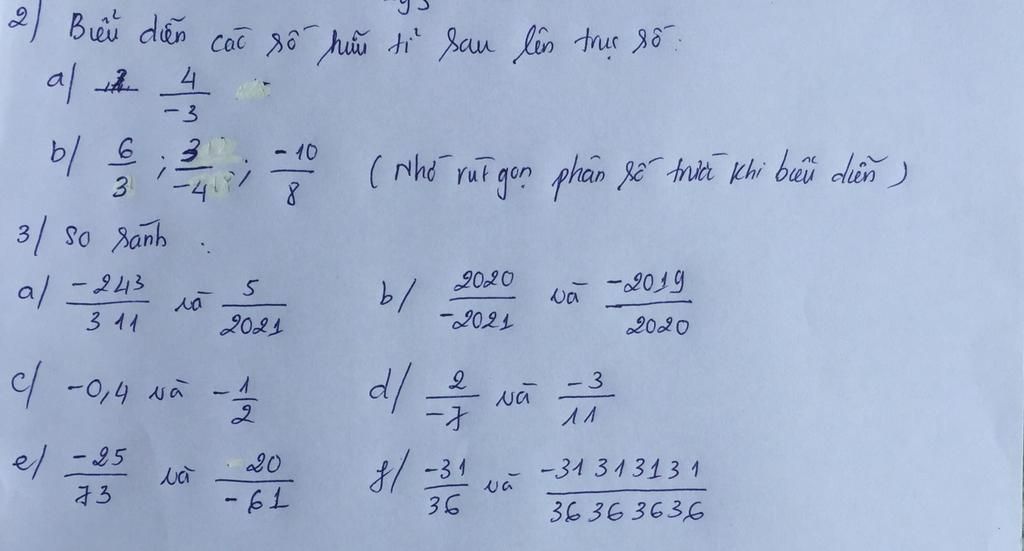 2) Biểu diễn các số hữu tỉ sau lên trục số:
a/ 4/-3
b/ 6/3 ; 3/-4 ; -10/8 (Nhớ rút gọn phân số trước khi biểu diễn)
3/ So sánh :
a/ -243/311 và 5/2021 b/ 2020/-2021 và -2019/2020
c/ -0,4 và -1/2 d/ 2/-7 và -3/11
e/ -25/73 và 20/-61 f/ -31/36 và -31313131/36363636